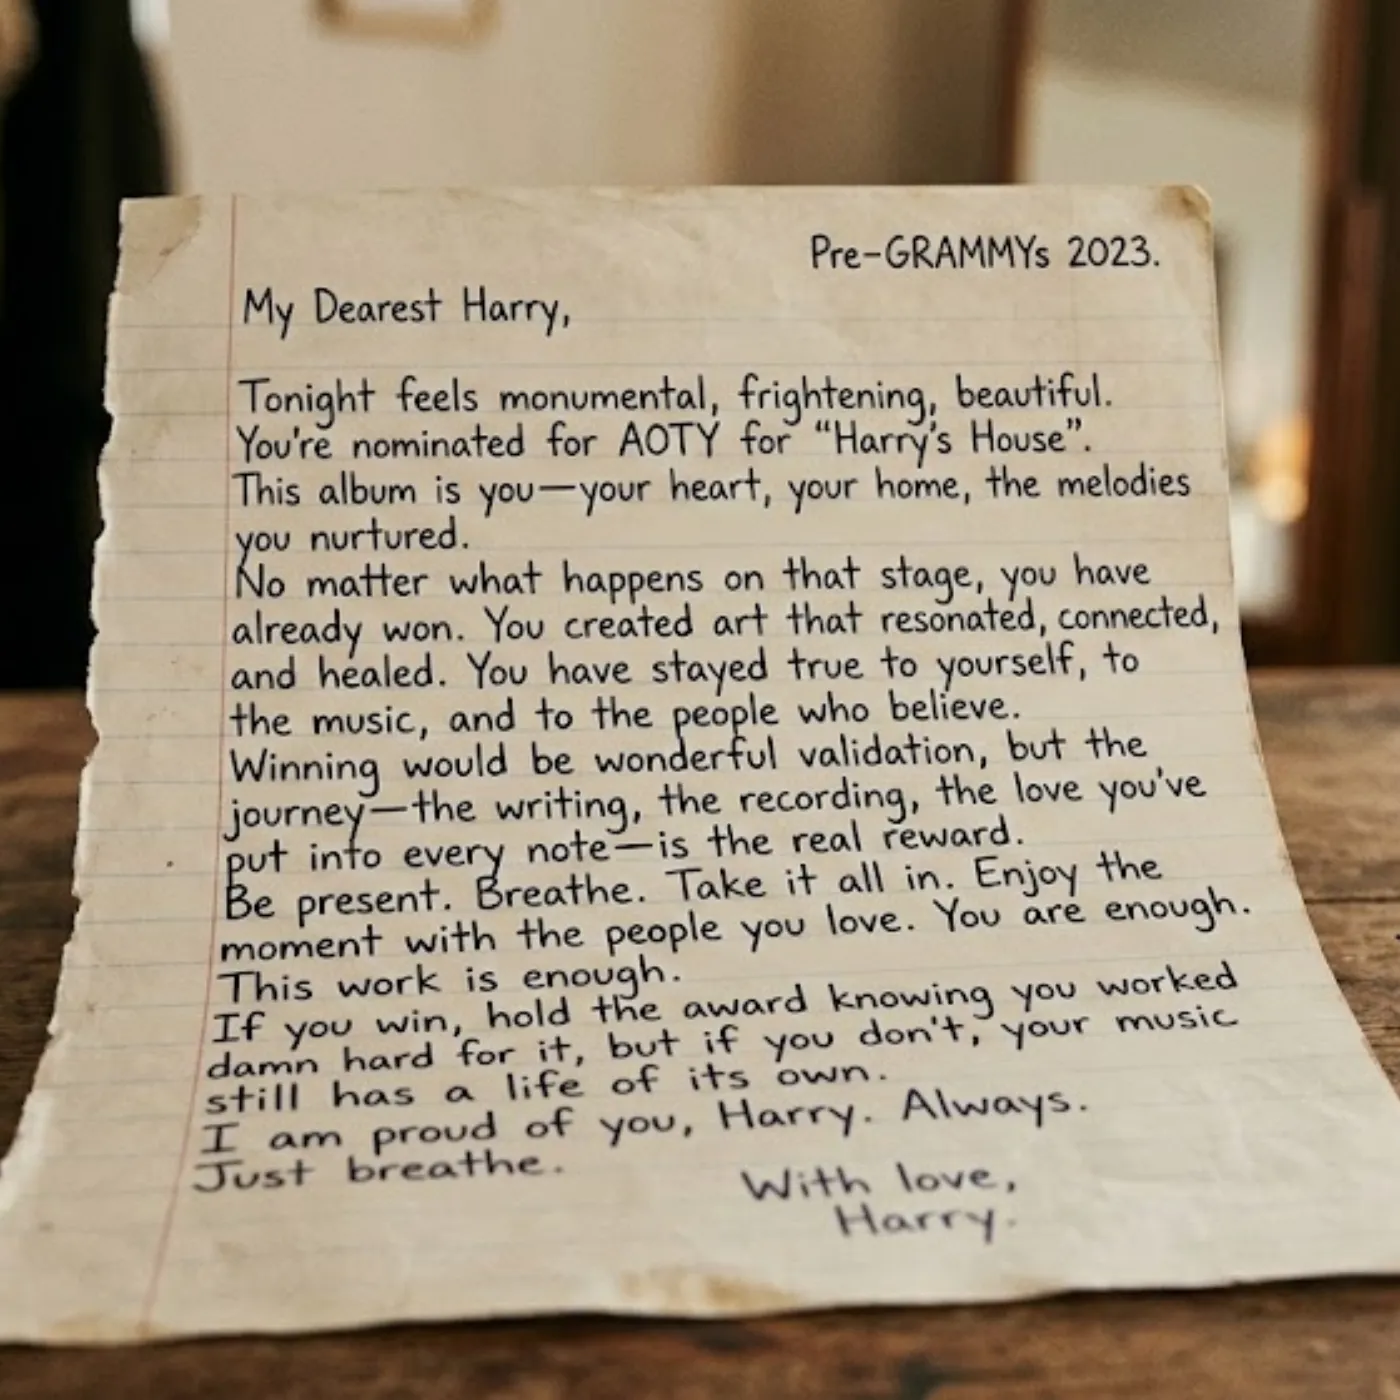 Pre-GRAMMYs 2023.
My Dearest Harry,
Tonight feels monumental, frightening, beautiful.
You're nominated for AOTY for “Harry's House”.
This album is you—your heart, your home, the melodies
you nurtured.
No matter what happens on that stage, you have
already won. You created art that resonated, connected,
and healed. You have stayed true to yourself, to
the music, and to the people who believe.
Winning would be wonderful validation, but the
journey—the writing, the recording, the love you've
put into every note—is the real reward.
Be present. Breathe. Take it all in. Enjoy the
moment with the people you love. You are enough.
This work is enough.
If you win, hold the award knowing you worked
damn hard for it, but if you don't, your music
still has a life of its own.
I am proud of you, Harry. Always.
Just breathe.
With love,
Harry.